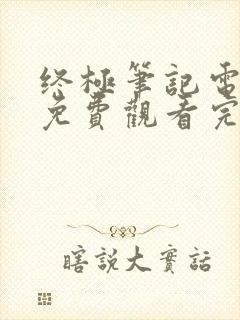 终極筆記電
免費觀看完
瞎說大實話